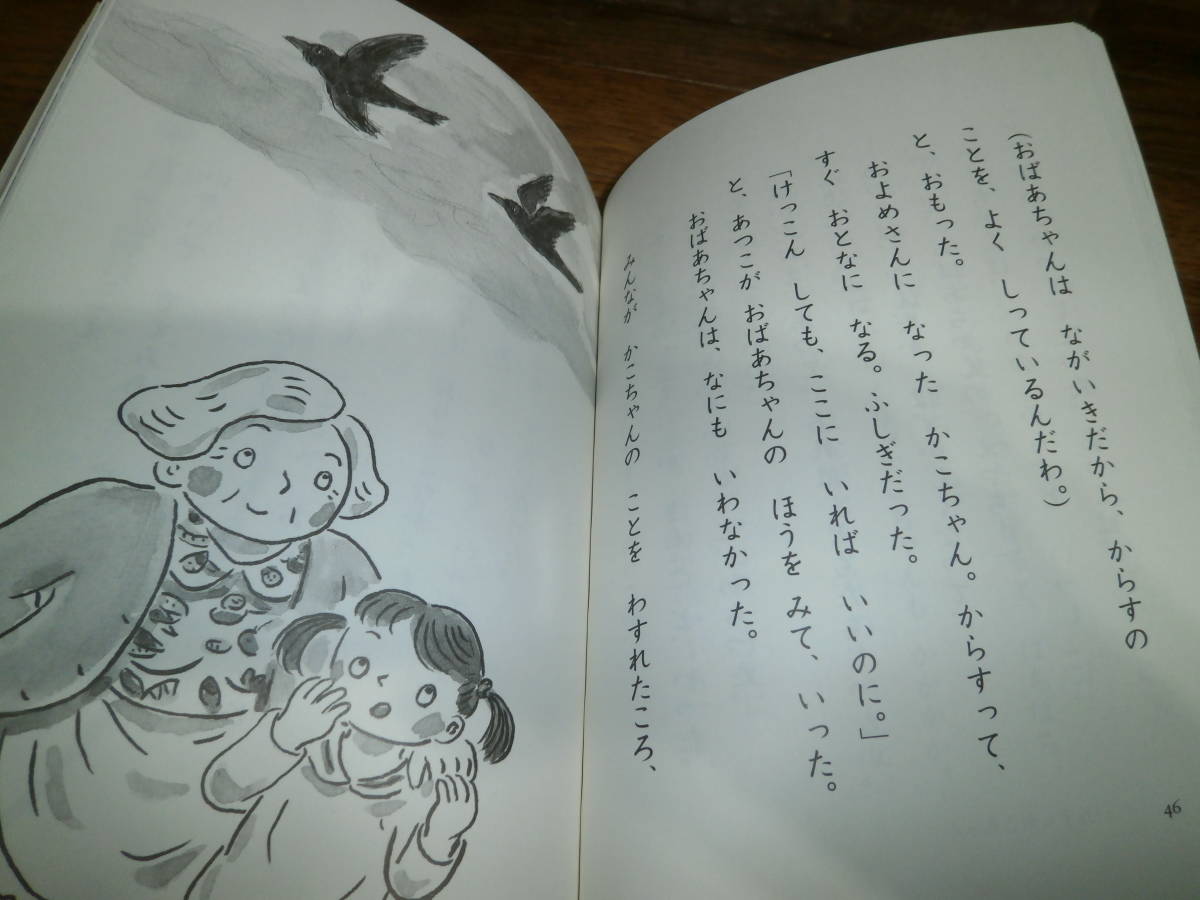 （おばあちゃんは　ながいきだから、からすの
ことを、よく　しっているんだわ。）
と、おもった。
およめさんに　なった　かこちゃん。からすって、
すぐ　おとなに　なる。ふしぎだった。
「けっこん　しても、ここに　いれば　いいのに。」
と、あつこが　おばあちゃんの　ほうを　みて、いった。
おばあちゃんは、なにも　いわなかった。
みんなが　かこちゃんの　ことを　わすれたころ、
46